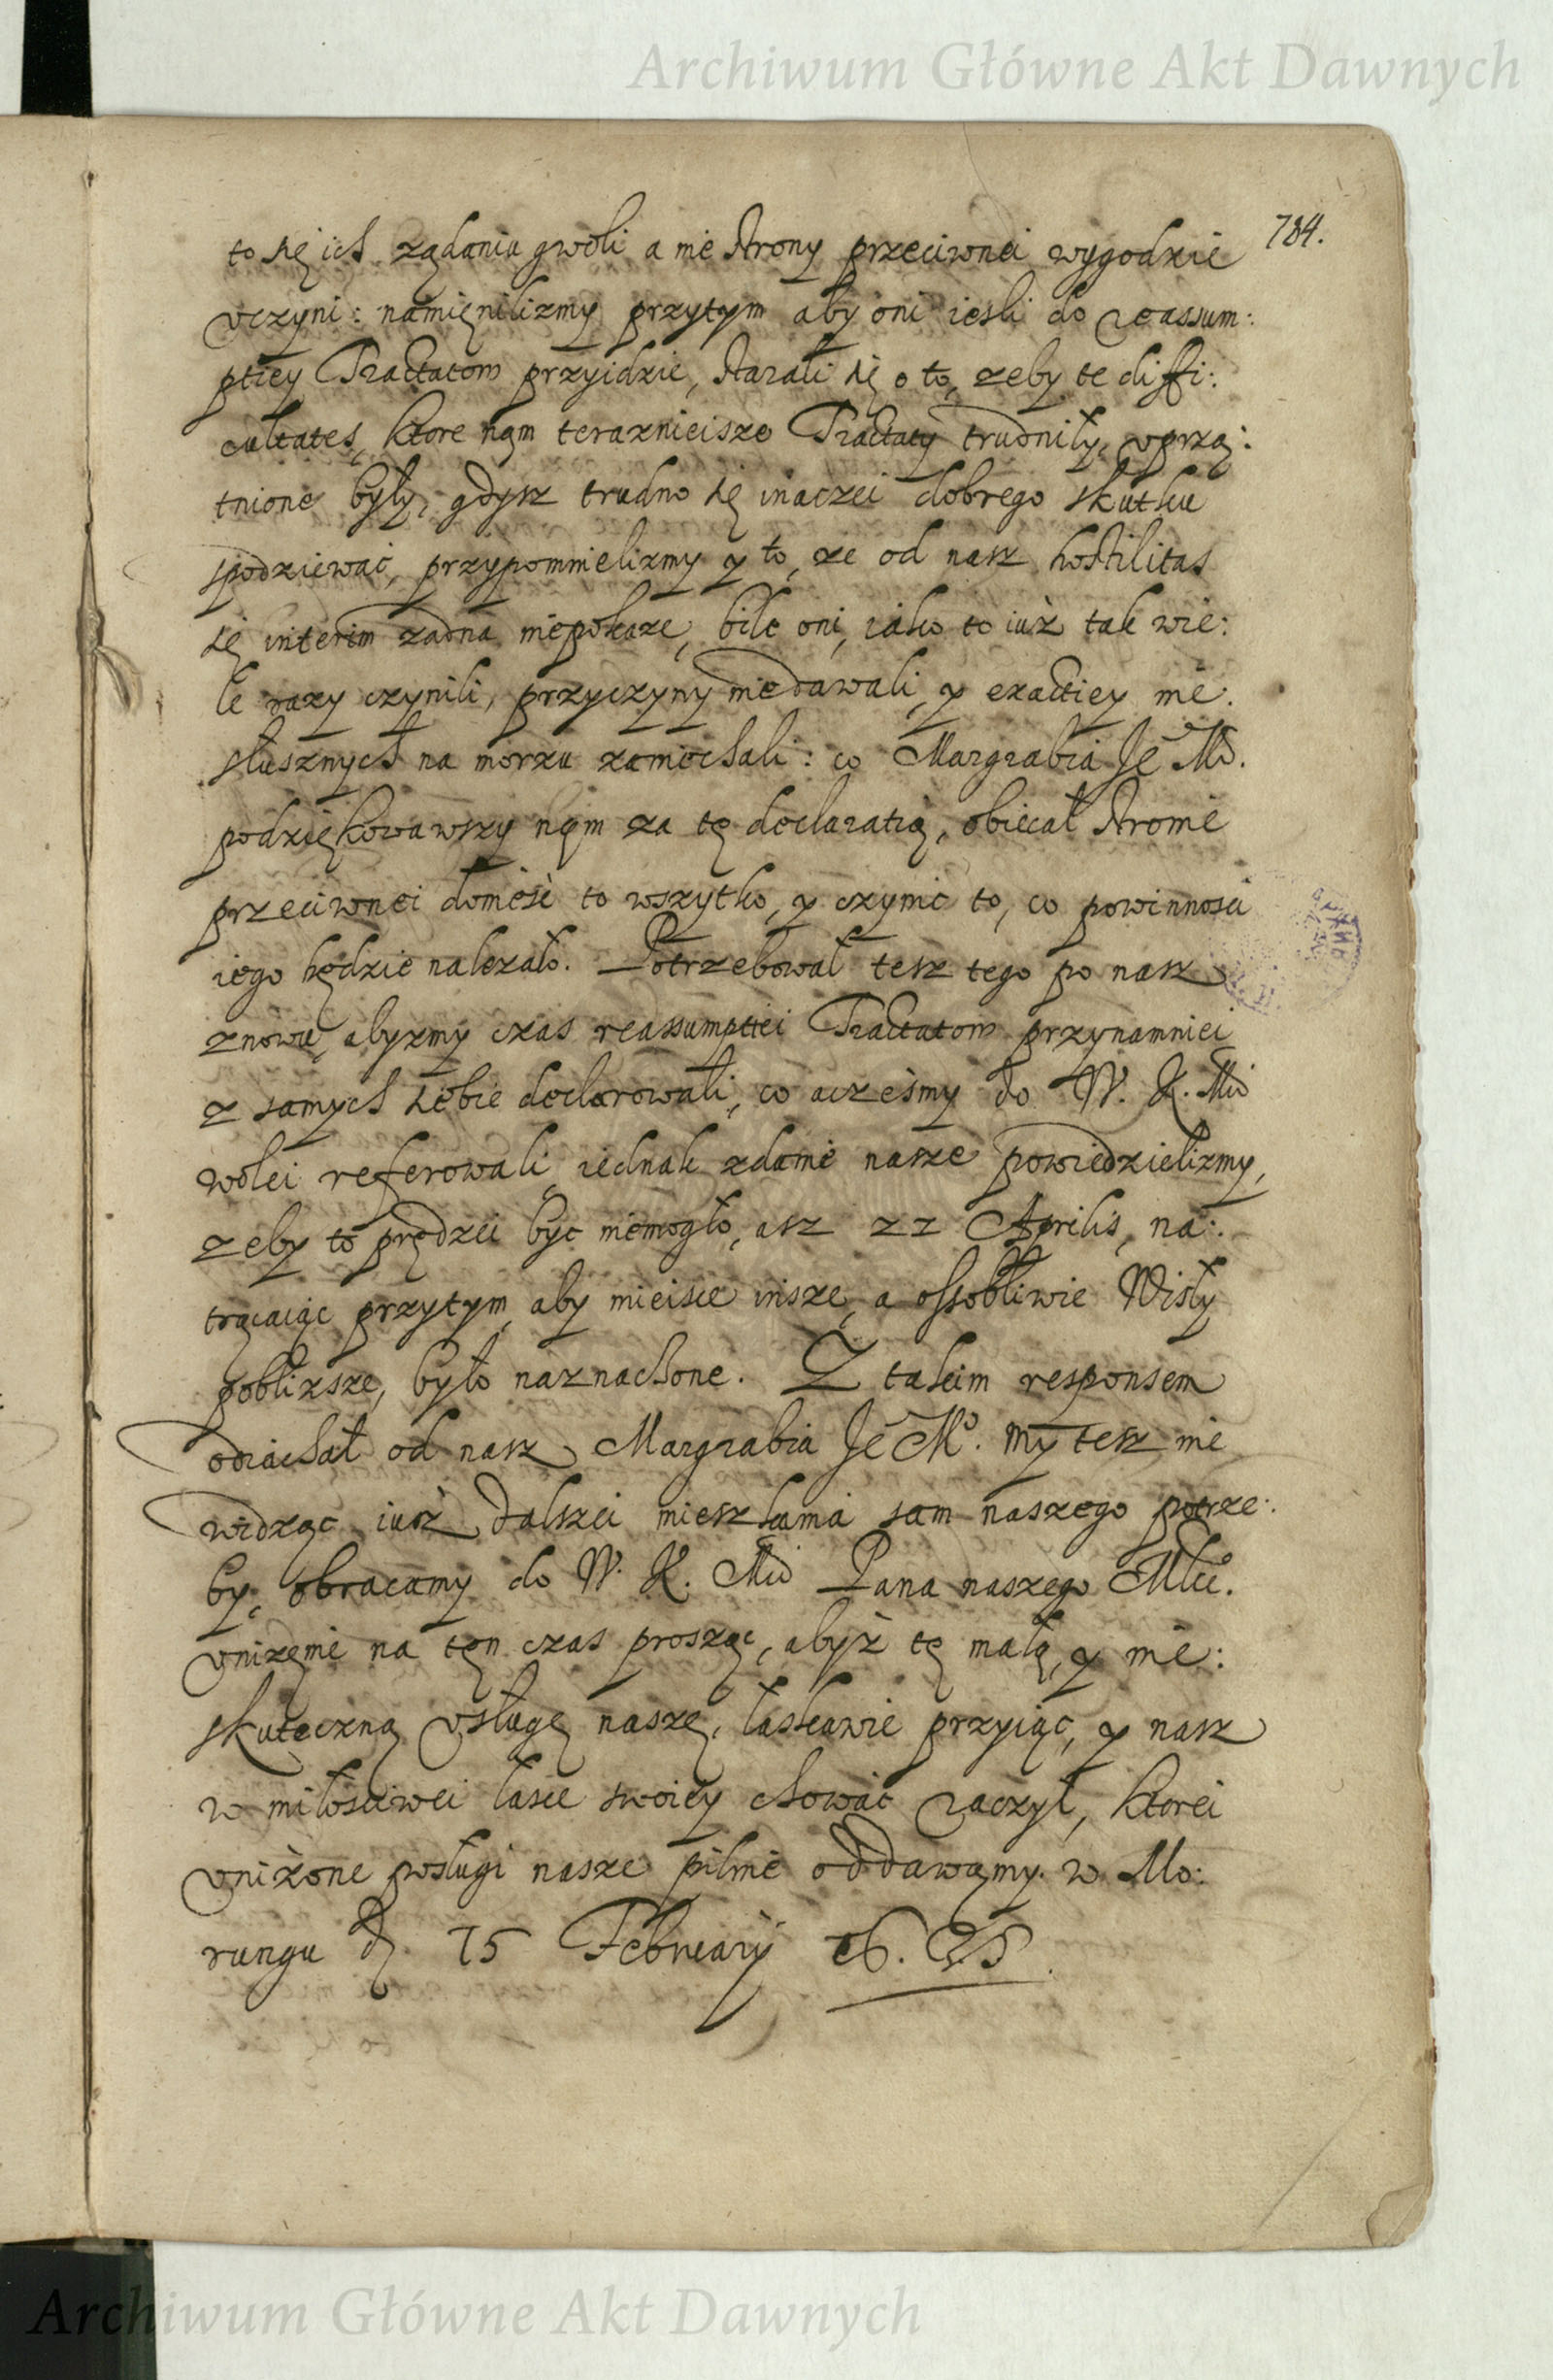 Archiwum Główne Akt Dawnych
784.
to się ich żądaniu gwoli a nie strony przeciwnei wygodzie
vczyni: namięnilizmy przytym aby oni iesli do reassum:
ptiey Tractatow przyidzie, starali się o to, zeby te diffi:
cultates, ktore nąm teraznieisze Tractaty trudniły, vprzą:
tnione były, gdysz trudno się inaczei dobrego skutku
spodziewać, przypomnielizmy y to, ze od nasz hostilitas
się interim zadna niepokaze, bile oni, iako to iuż tak wie:
le razy czynili, przyczyny niedawali, y exactiey nie:
słusznych na morzu zaniechali: co Margrabia Je Mć.
podziękowawszy nąm za tę declaratią, obiecał stronie
przeciwnei donieść to wszytko, y czynić to, co powinnosci
iego będzie nalezało. Potrzebował tesz tego po nasz
znowu, abyzmy czas reassumptiei Tractatow przynamniei
z samych siebie declarowali, co acześmy do W. K. Mći
wolei referowali, iednak zdanie nasze powiedzielizmy,
zeby to prędzei być niemogło, asz 22 Aprilis, na:
trącaiąc przytym, aby mieisce insze, a ossobliwie Wisły
pobliższe, było naznaczone. Z takim responsem
odiachał od nasz Margrabia Je Mć. My tesz nie
widząc iusz dalszei mieszkania sam naszego potrze:
by, obracamy do W. K. Mći Pana naszego Młci.
vnizęnie na tęn czas prosząc, abyż tę małą, y nie:
skuteczną vsługę naszę, łaskawie przyiąć, y nasz
w miłosciwei łasce swoiey chować raczył, ktorei
vniżone posługi nasze pilnie oddawąmy. w Mo:
rungu d. 15 February 16.28.
Archiwum Główne Akt Dawnych